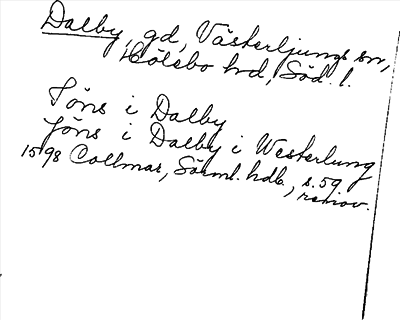 Dalby, gd, Västerljungs sn,
Hölebo hd, Söd. l.
Jöns i Dalby
Jöns i Dalby i Westerlung
1598 Collmar, Sörml. hdb., s. 59
renov.